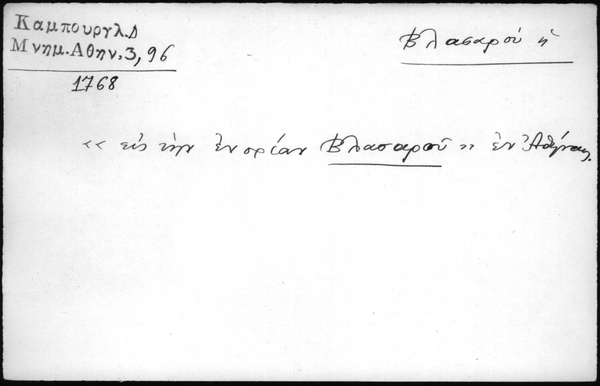 Καμπουργλ.Δ
Μνημ.Αθην.3,96
1768
Βλασαροῦ ἡ
«εἰς τὴν ἐνορίαν Βλασαροῦ» ἐν Ἀθήναις